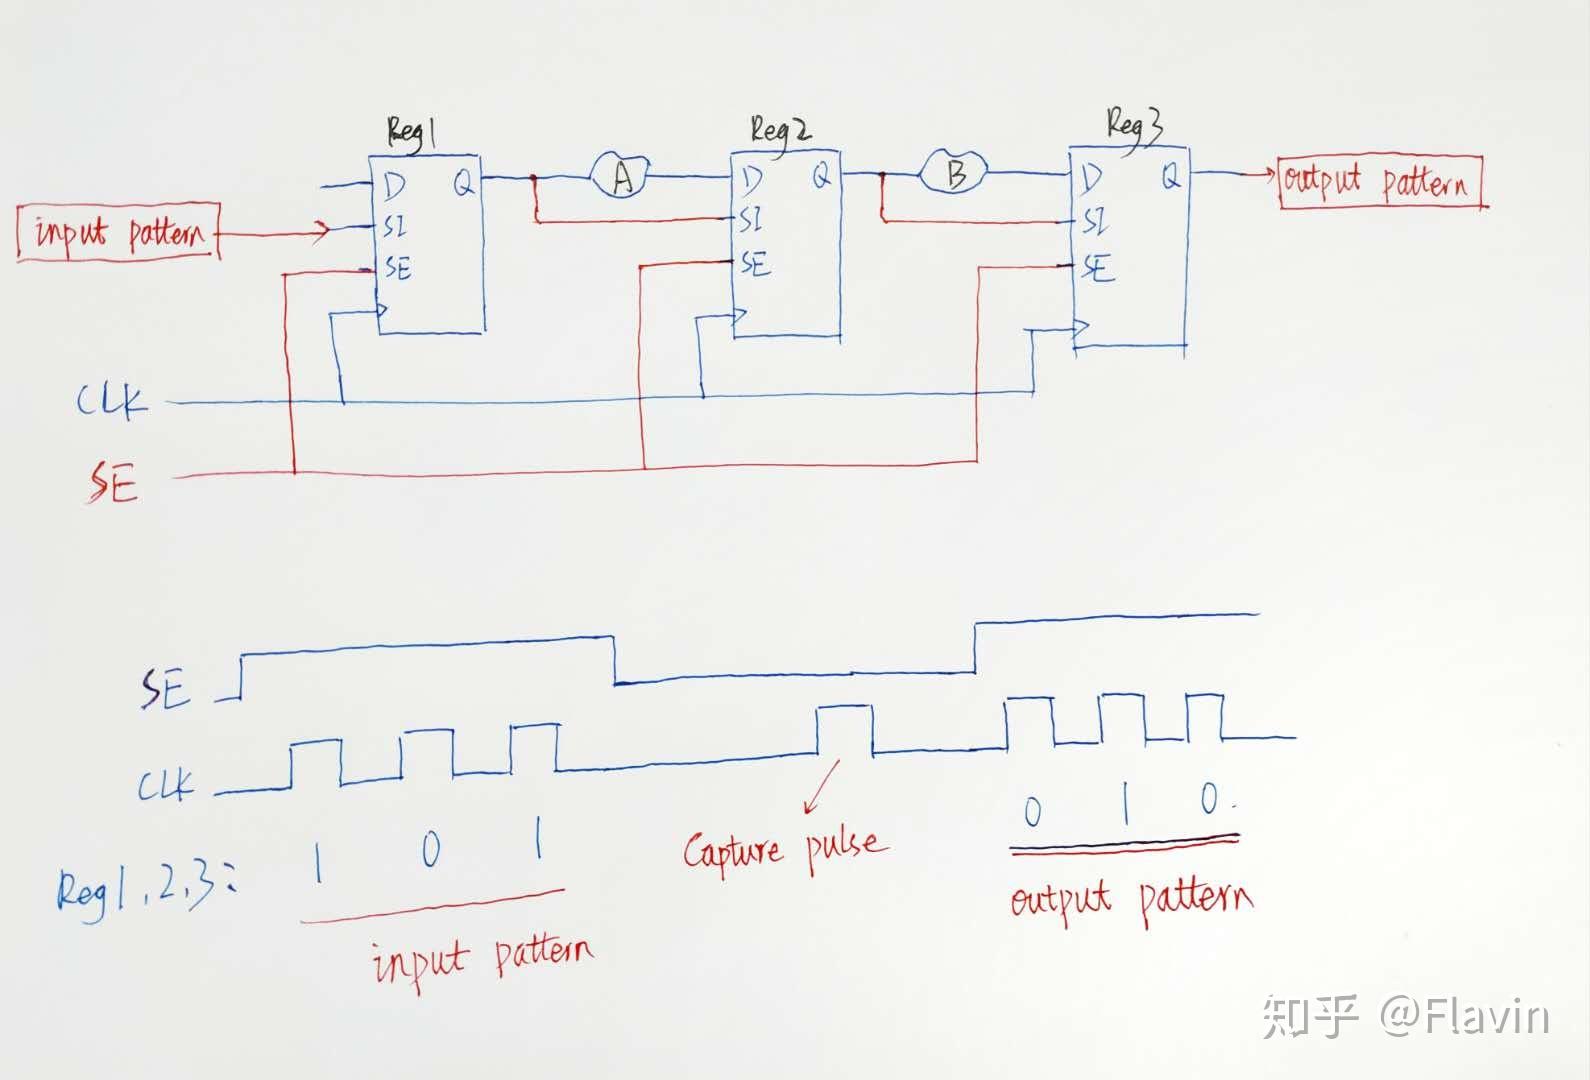 Reg1 Reg2 Reg3
D Q A D Q B D Q output pattern
input pattern SI SI SI
SE SE SE
CLK
SE
SE
CLK
Capture pulse
0 1 0.
Reg1,2,3: 1 0 1
output pattern
input pattern
知乎 @Flavin